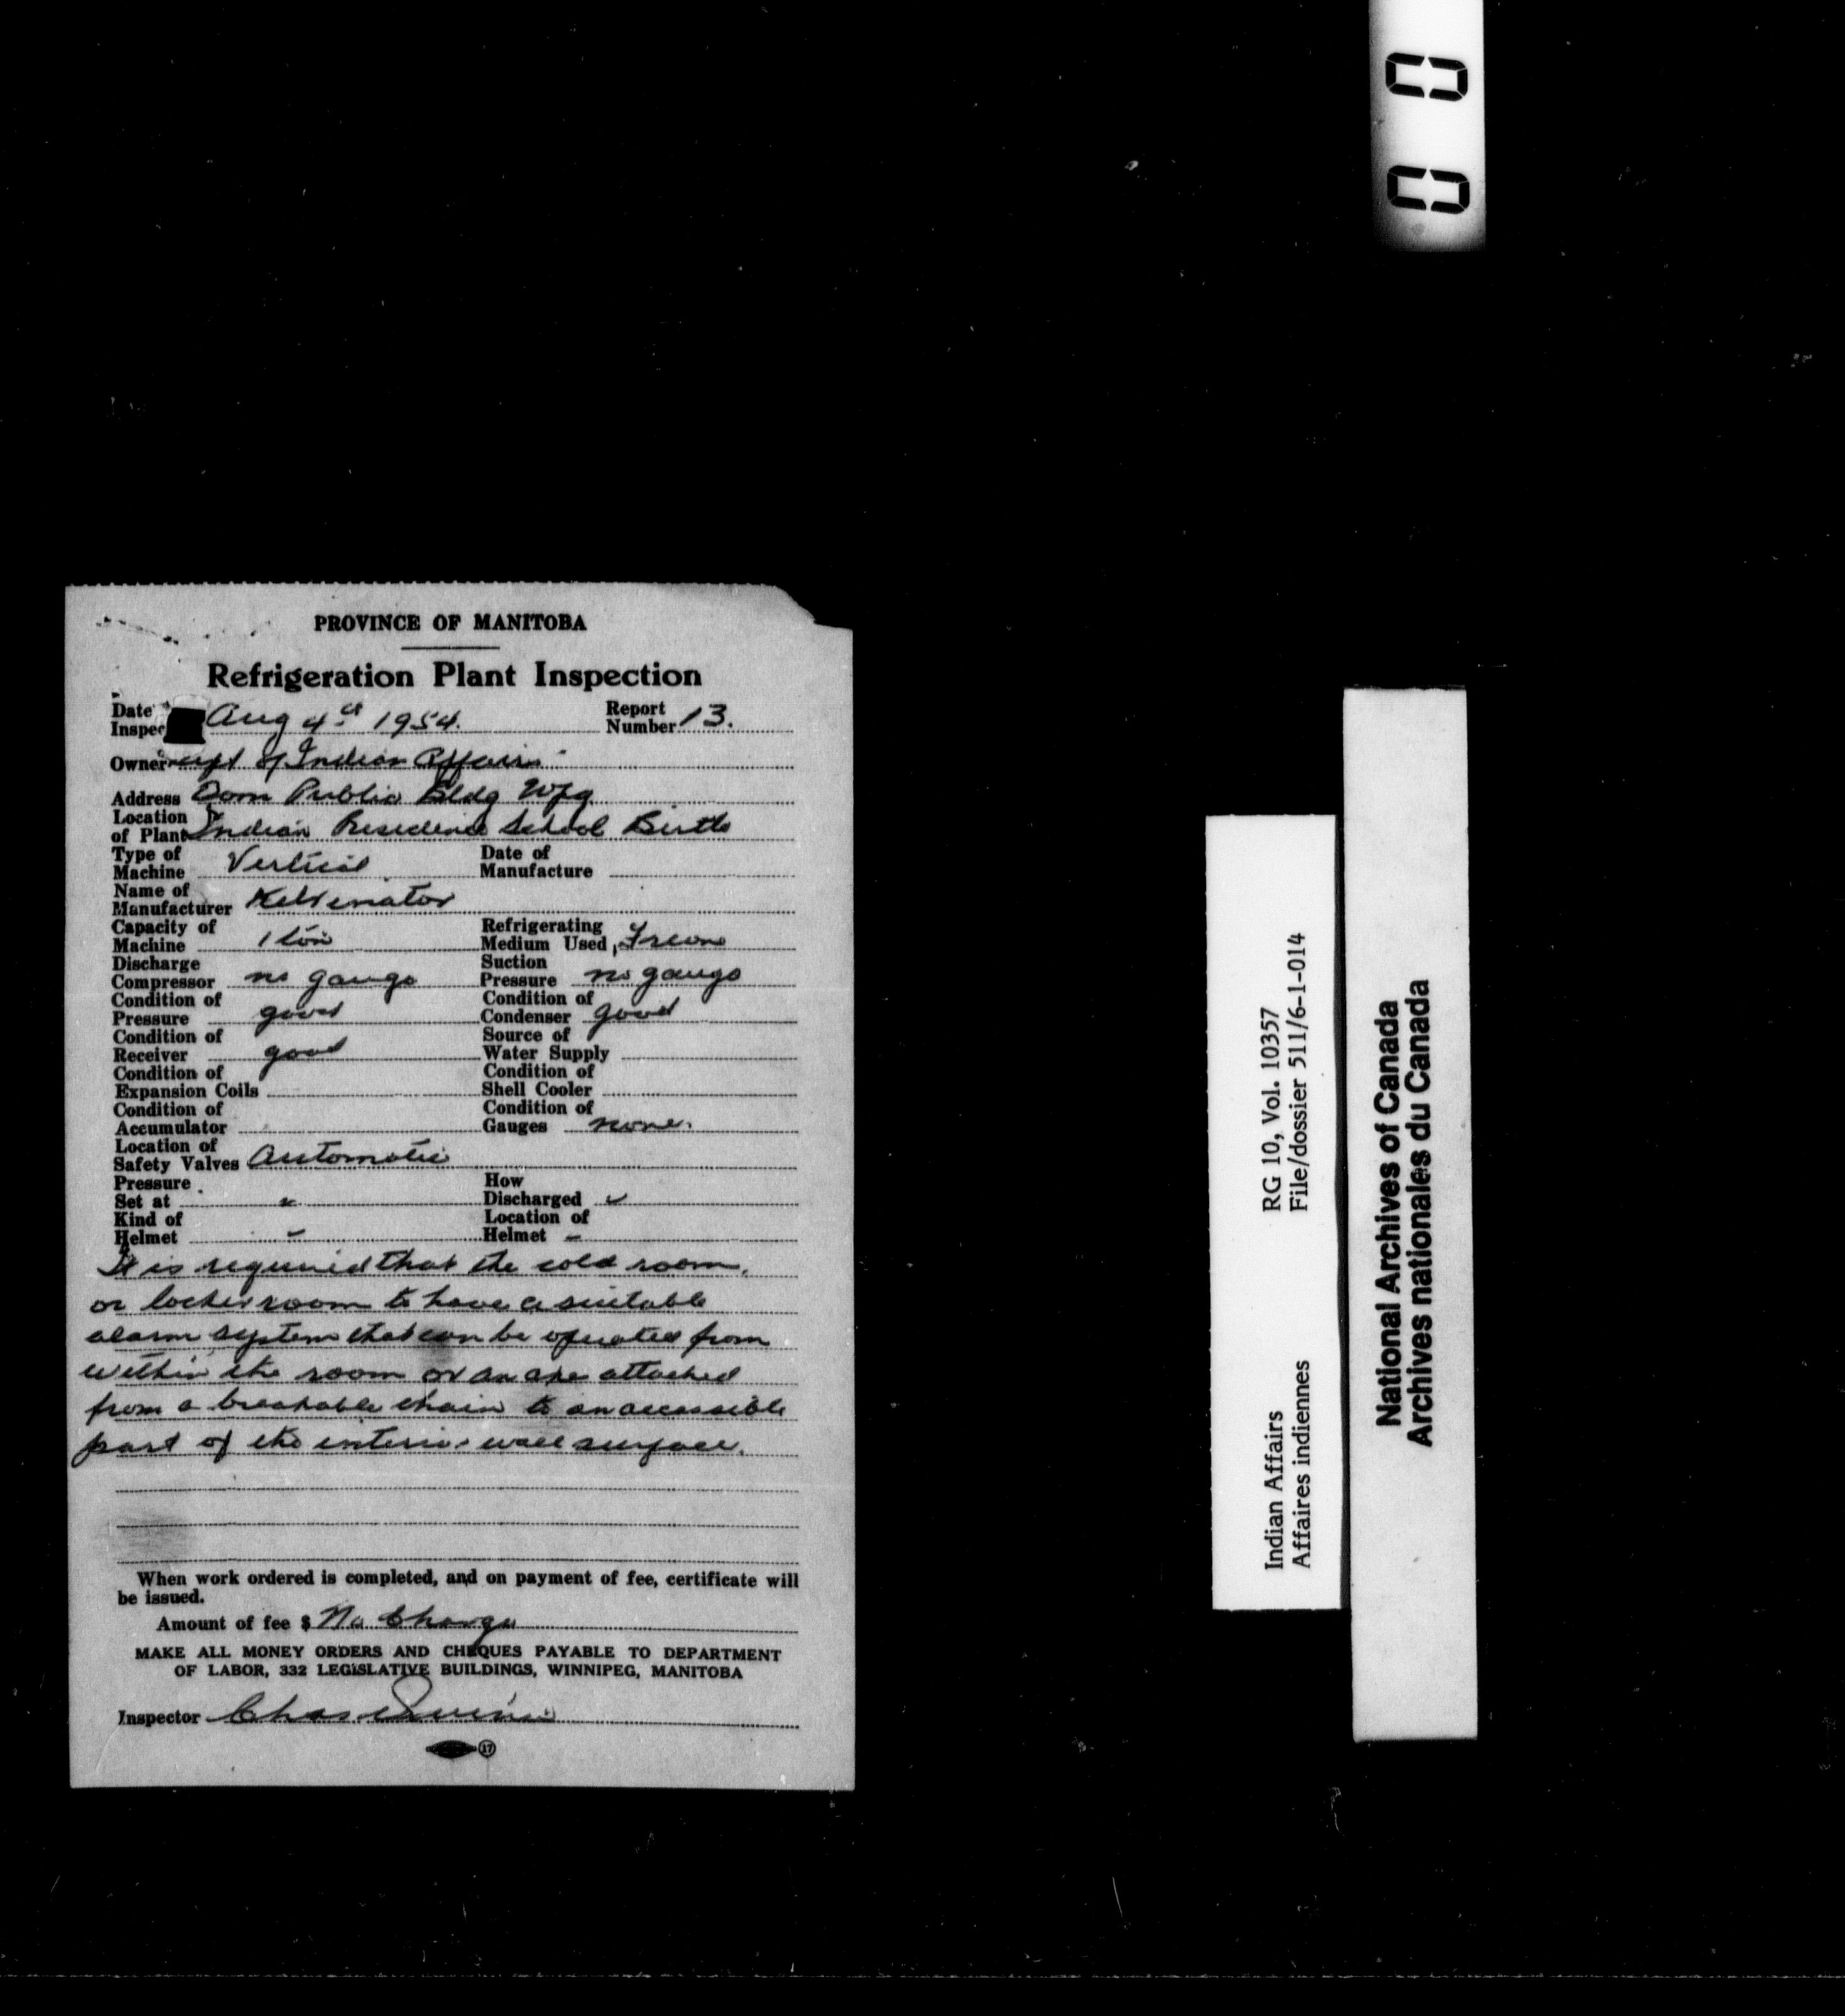 PROVINCE OF MANITOBA
Refrigeration Plant Inspection
Date Aug 4th 1954. Report
Inspec Number 13.
Owner Dept of Indian Affairs
Address Dom Public Bldg Wpg
Location
of Plant Indian Residence School Birtle
Type of Vertical Date of
Machine Manufacture
Name of
Manufacturer Kelvinator
Capacity of Refrigerating
Machine 1 ton Medium Used, Freon
Discharge Suction
Compressor no gauge Pressure no gauge
Condition of Condition of
Pressure good Condenser good
Condition of Source of
Receiver good Water Supply
Condition of Condition of
Expansion Coils Shell Cooler
Condition of Condition of
Accumulator Gauges none.
Location of
Safety Valves Automatic
Pressure How
Set at Discharged
Kind of Location of
Helmet - Helmet -
It is required that the cold room,
or locker room to have a suitable
alarm system that can be operated from
within the room or an axe attached
from a breakable chain to an accessible
part of the interior wall surface.
When work ordered is completed, and on payment of fee, certificate will
be issued.
Amount of fee $ No Charge
MAKE ALL MONEY ORDERS AND CHEQUES PAYABLE TO DEPARTMENT
OF LABOR, 332 LEGISLATIVE BUILDINGS, WINNIPEG, MANITOBA
Inspector Chas
17
Indian Affairs RG 10, Vol. 10357
Affaires indiennes File/dossier 511/6-1-014
National Archives of Canada
Archives nationales du Canada
00